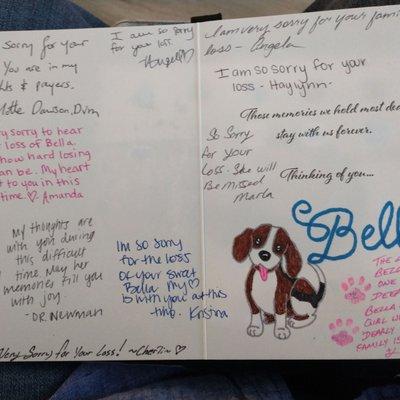 Sorry for your
You are in my
& prayers.
Dawson, Dvm
sorry to hear
loss of Bella.
how hard losing
can be. My heart
to you in this
time. ♡ Amanda
My thoughts are
with you during
this difficult
time. May her
memories fill you
with joy.
- DR. NEWMAN
Very Sorry for Your Loss!
I am so sorry
for your loss.
Im so sorry
for the loss
of your sweet
Bella. My ♡
is with you at this
time. Kristina
I am very sorry for your fami
loss - Angela
I am so sorry for your
loss - Haylynn -
Those memories we hold most dea
stay with us forever.
So Sorry
for your
Loss. She will
be missed
Marla
Thinking of you...
Bell
THE L
BELL
ONE
DEEP
BELLA
GIRL W
DEARLY
FAMILY IS